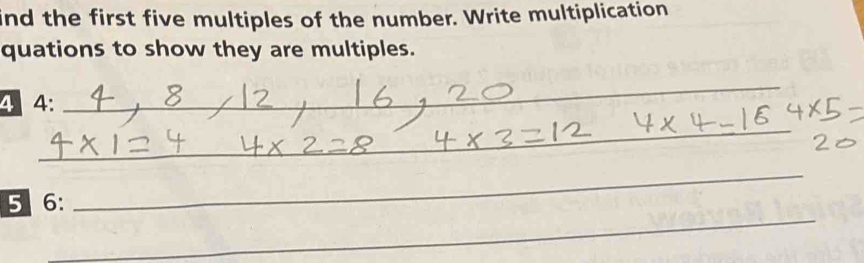 ind the first five multiples of the number. Write multiplication
quations to show they are multiples.
4 4: 4, 8, 12, 16, 20
4 × 1 = 4 4 × 2 = 8 4 × 3 = 12 4 × 4 = 16 4 × 5 =
20
5 6: